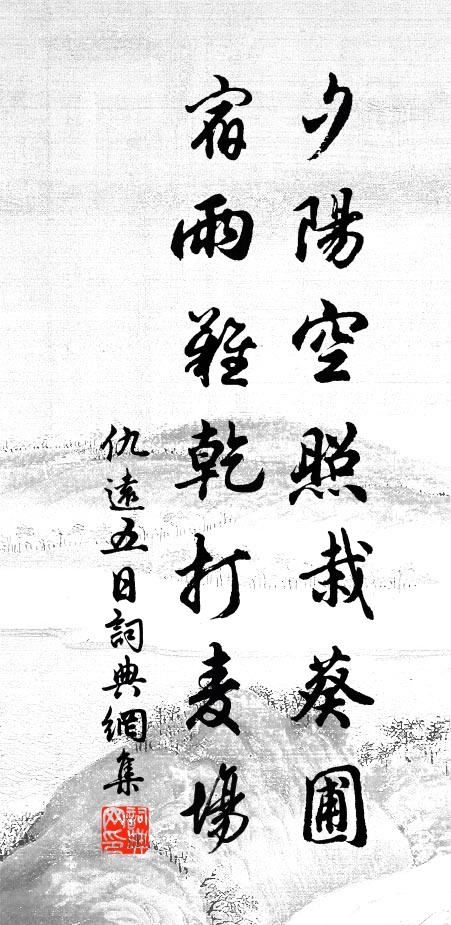 夕陽空照栽葵圃
宿雨難乾打麦場
仇遠五日詞典網集